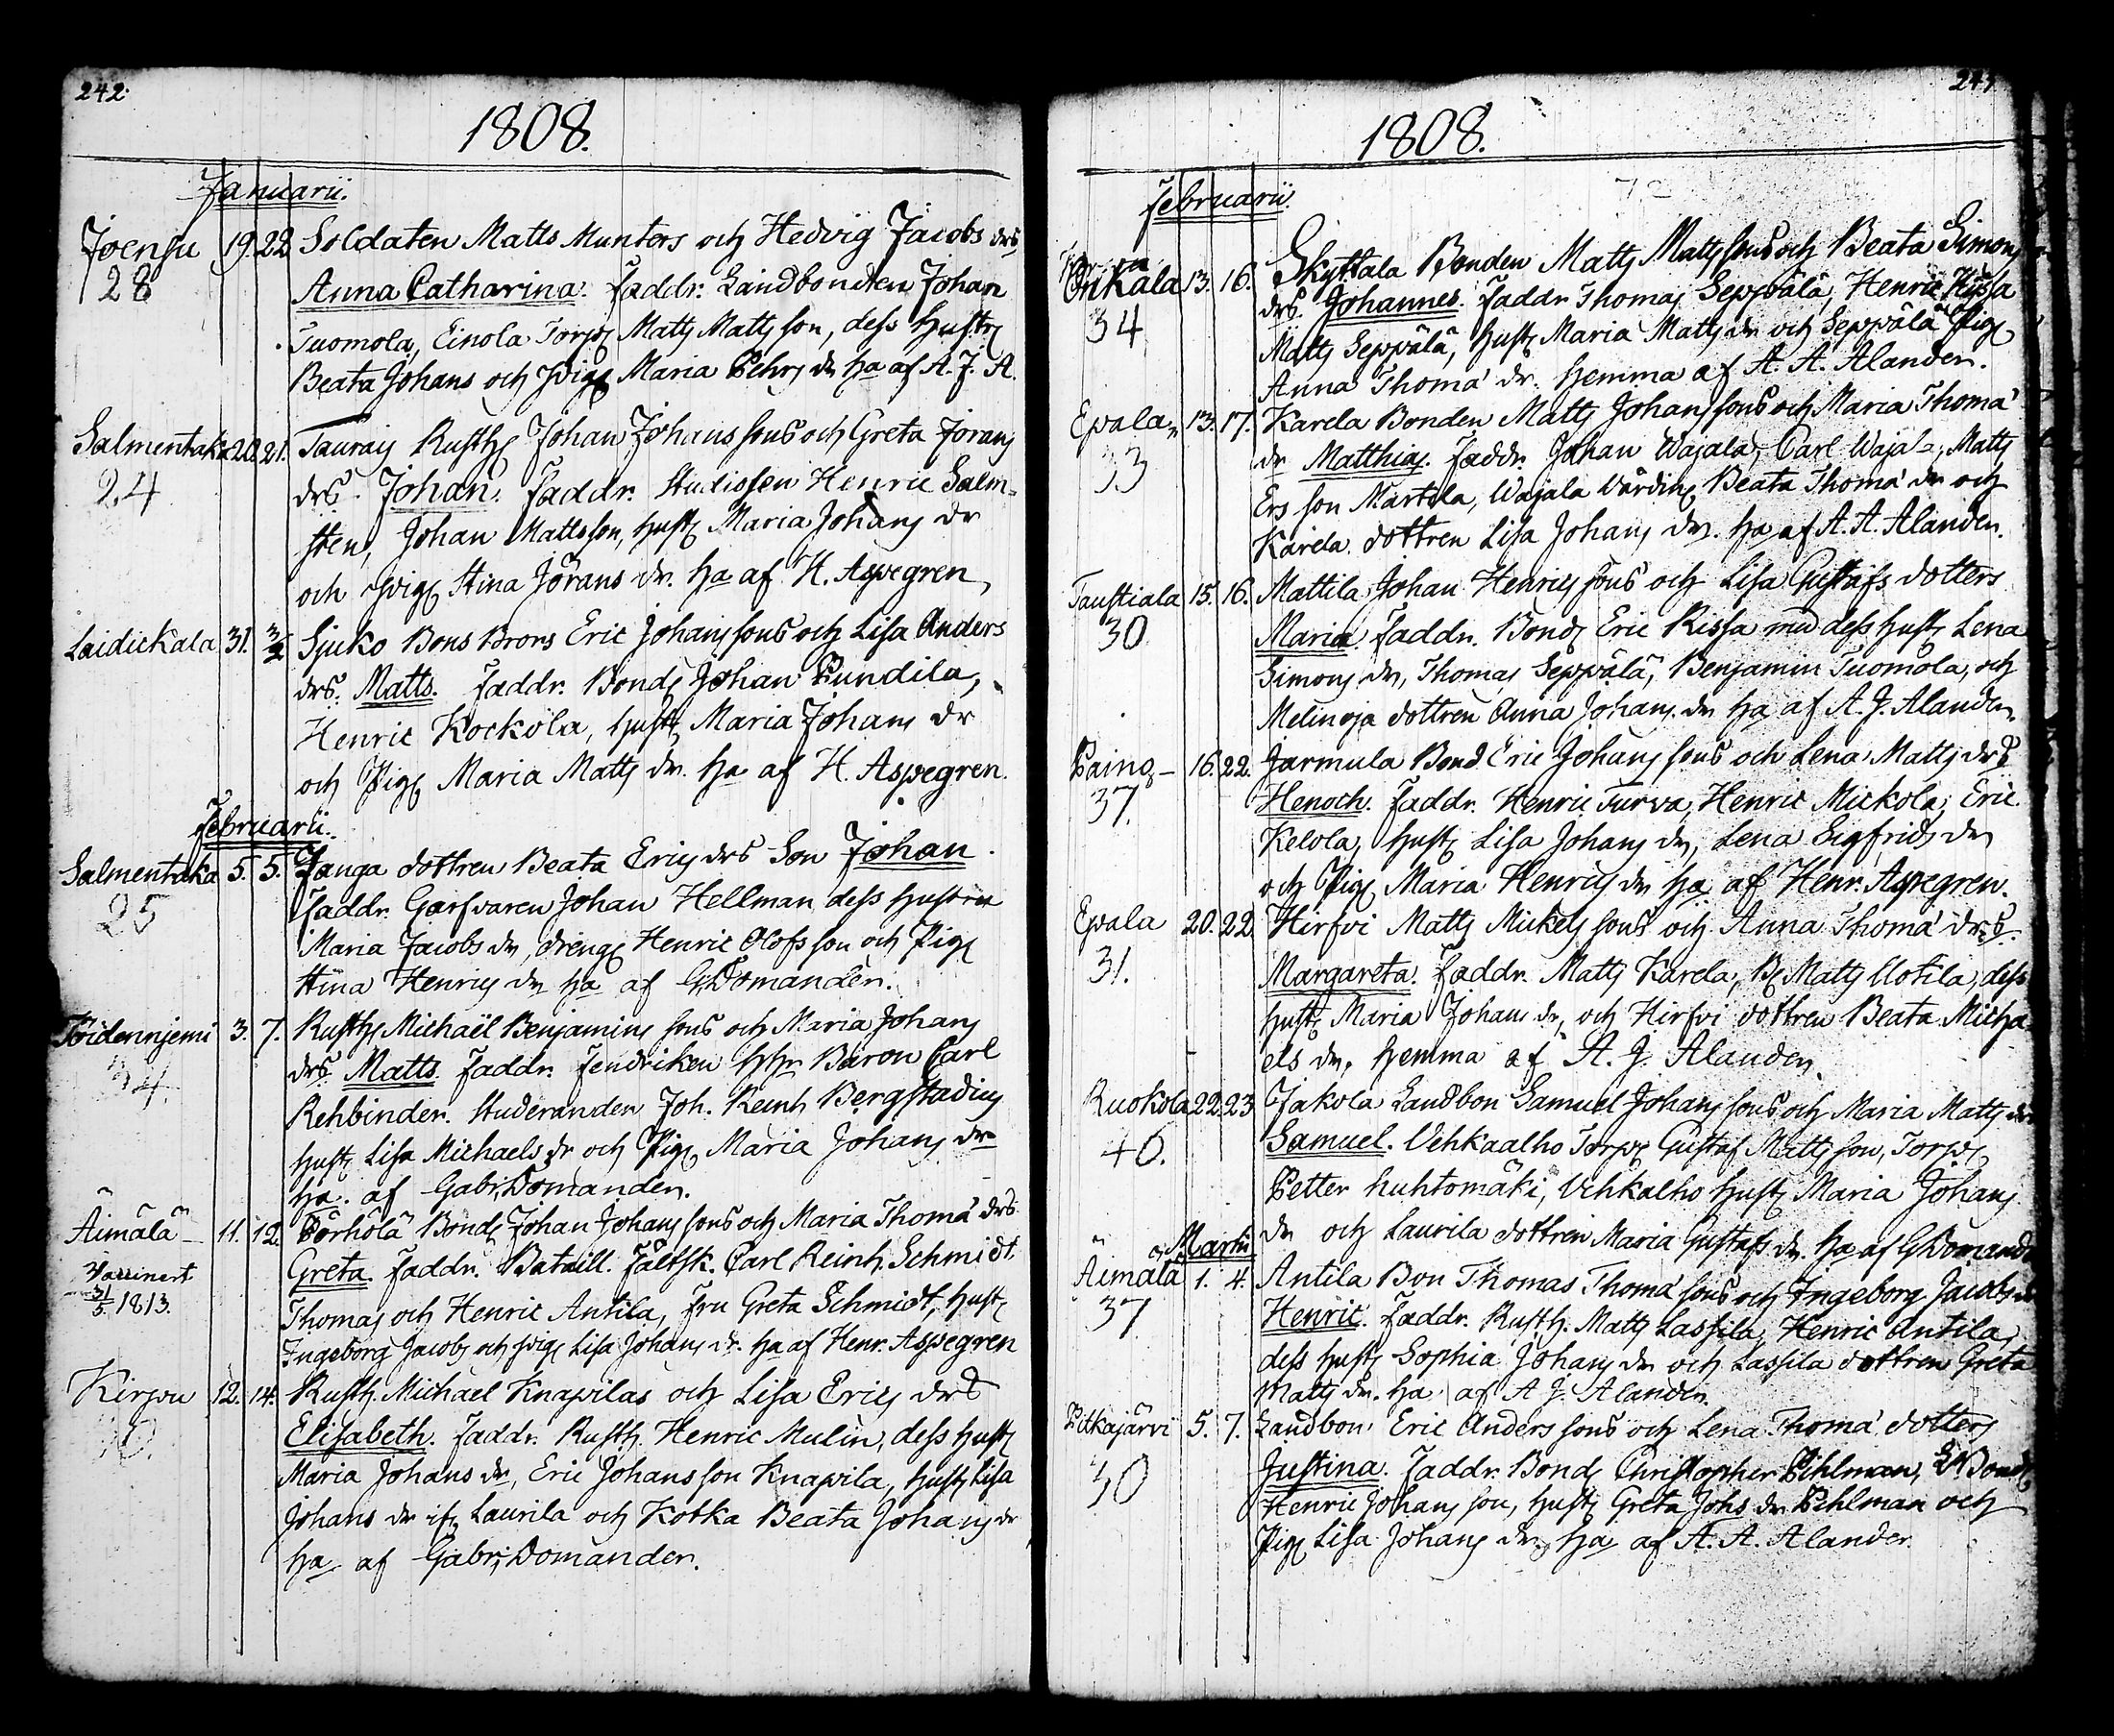 242.
1808.
Januarii.
Joensu 19. 22. Soldaten Matts Munters och Hedvig Jacobs drs,
28 Anna Catharina. Faddr. Landbonden Johan
Tuomola, Einola Torp, Matts Matts son, dess hustr
Beata Johans och Pig. Maria Pehrs dr ha af A. J. A.
Salmentaka 20. 21. Taurais Rusth Johan Johans sons och Greta Jörans
24 drs. Johan. Faddr. Studiosen Henric Salm-
sten, Johan Mattsson, hust Maria Johans dr
och Pig. Stina Jörans dr. ha af H. Aspegren,
Laidickala 31. 3/2 Sjuko Bons Brors Eric Johans sons och Lisa Anders
drs. Matts. Faddr. Bond Johan Pundila,
Henric Kockola, hust Maria Johans dr
och Pig Maria Matts dr. ha af H. Aspegren.
Februarii.
Salmentaka 5. 5. Janga dottren Beata Erics drs Son Johan.
25 Faddr. Garfvaren Johan Hellman dess hustru
Maria Jacobs dr, dreng Henric Olofs son och Pig
Stina Henrics dr ha af G. Domander.
Toidennjemi 3. 7. Rusth Michaël Benjamins sons och Maria Johans
34. drs. Matts. Faddr. Fendriken HHr Baron Carl
Rehbinder. Studeranden Joh. Reinh Bergstadius
hust Lisa Michaels dr och Pig Maria Johans dr
ha. af Gabr. Domander.
Äimälä 11. 12. Pörhölä Bond Johan Johans sons och Maria Thomä drs
Vaccinert Greta. Faddr. Bataill. Fältsk. Carl Reinh. Schmidt
31/5 1813. Thomas och Henric Antila, Fru Greta Schmidt, hust
Ingeborg Jacobs och pig Lisa Johans dr. ha af Henr. Aspegren
Kirpu 12. 14. Rusth. Michael Knapilas och Lisa Erics drs
Elisabeth. Faddr. Rusth. Henric Mulin, dess hust
Maria Johans dr, Eric Johans son Knapila, hust Lisa
Johans dr ifr Laurila och Kotka Beata Johans dr
ha af Gabr. Domander.
1808.
Februarii.
Onkala 13. 16. Skyttala Bonden Matts Matts sons och Beata Simons
34 drs. Johannes. Faddr Thomas Seppälä, Henric Kyssa
Matts Seppälä, hust Maria Matts dr och Seppälä Pig
Anna Thomä dr. hemma af A. A. Alander.
Epala 13. 17. Karela Bonden Matts Johans sons och Maria Thomä
33 dr Matthias. Faddr. Johan Wajala, Carl Wajala, Matts
Ers son Martila, Wajala Värdin Beata Thomä dr och
Karela dottren Lisa Johans dr. ha af A. A. Alander.
Taustiala 15. 16. Mattila Johan Henrics sons och Lisa Gustafs dotters
30 Maria. Faddr. Bond Eric Kissa med dess hust Lena
Simons dr, Thomas Seppälä, Benjamin Tuomola, och
Melinoja dottren Anna Johans dr ha af A. J. Alander.
Paino 16. 22. Jarmula Bond Eric Johans sons och Lena Matts drs
37. Henoch. Faddr. Henric Turva, Henric Mickola, Eric
Kelola, hust Lisa Johans dr, Lena Sigfrids dr
och Pig Maria Henrics dr ha af Henr. Aspegren.
Epala 20. 22. Hirfvi Matts Mickels sons och Anna Thomä drs.
31. Margareta. Faddr. Matts Karela, B. Matts Uotila, dess
hust Maria Johans dr, och Hirfvi dottren Beata Micha-
els dr, hemma af A. J. Alander.
Ruokola 22. 23 Jakola Landbon Samuel Johans sons och Maria Matts drs
40. Samuel. Vehkaalho Torp Gustaf Matts son, Torp
Petter huhtomäki, Vehkalho hust Maria Johans
dr och Laurila dottren Maria Gustafs dr. ha af G Domander
Martii
Äimälä 1. 4. Antila Bon Thomas Thomä sons och Ingeborg Jacobs drs
37 Henric. Faddr. Rusth. Matts Lassila, Henric Antila,
dess hust Sophia Johans dr och Lassila dottren Greta
Matts dr. ha af A J. Alander.
Pitkäjärvi 5. 7. Landbon Eric Anders sons och Lena Thomä dotters
30 Justina. Faddr. Bond Christopher Pihlman, L Bond
Henric Johans son, hust Greta Johs dr Pihlman och
Pig Lisa Johans dr, ha af A. A. Alander.